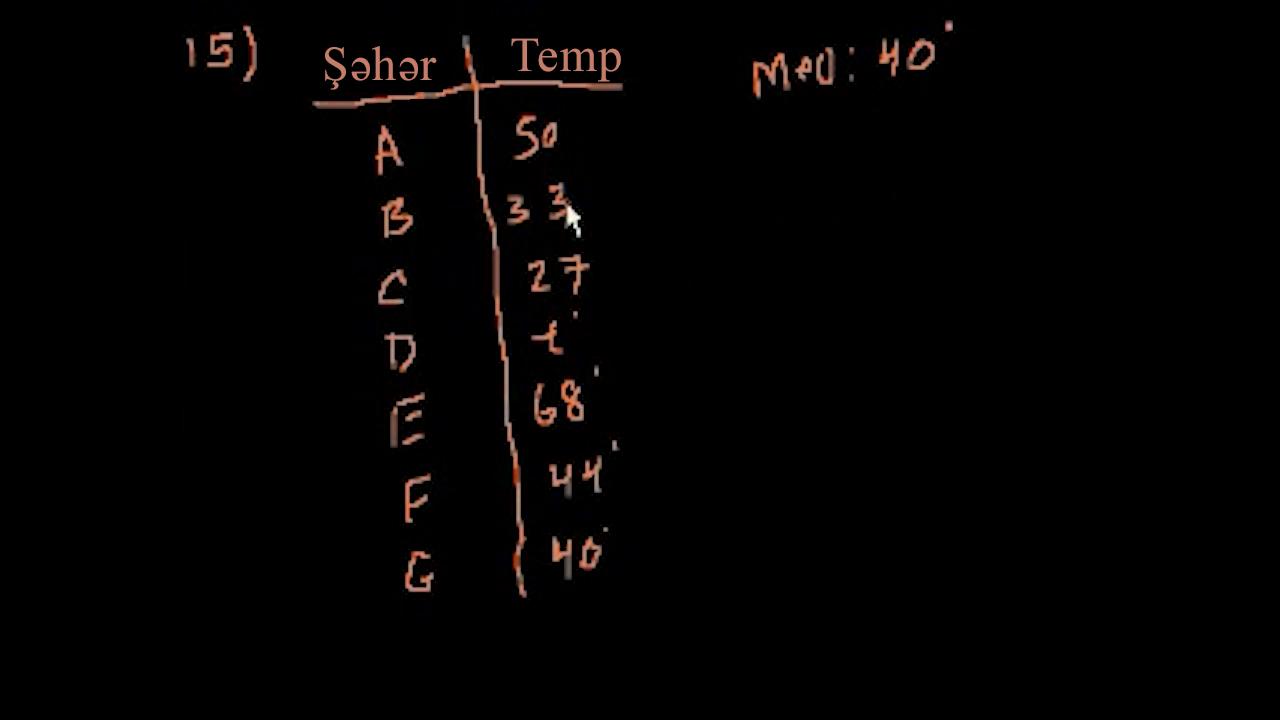 15) Şəhər Temp Med: 40°
A 50
B 33
C 27
D t°
E 68°
F 44°
G 40°